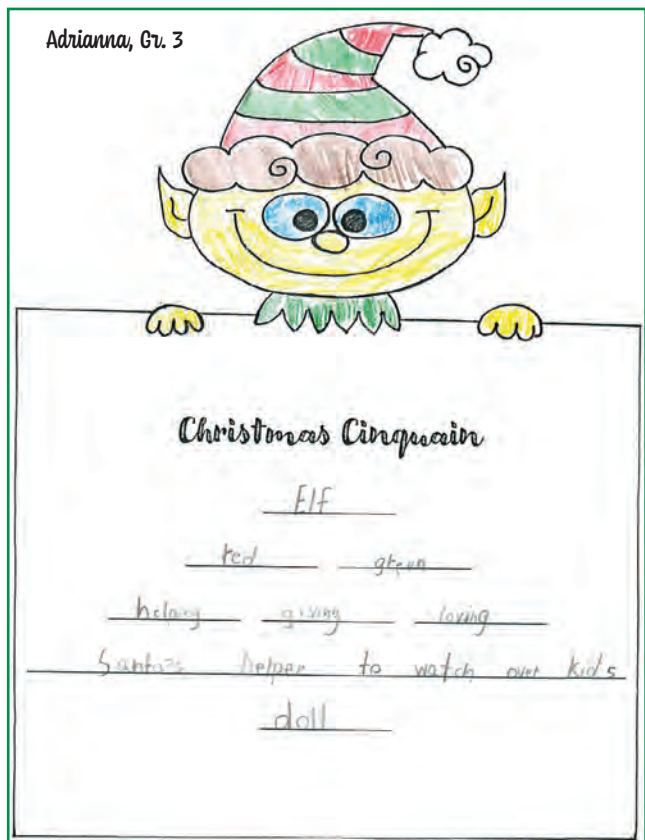 Adrianna, Gr. 3
Christmas Cinquain
Elf
red green
helping giving loving
Santa's helper to watch over kids
doll